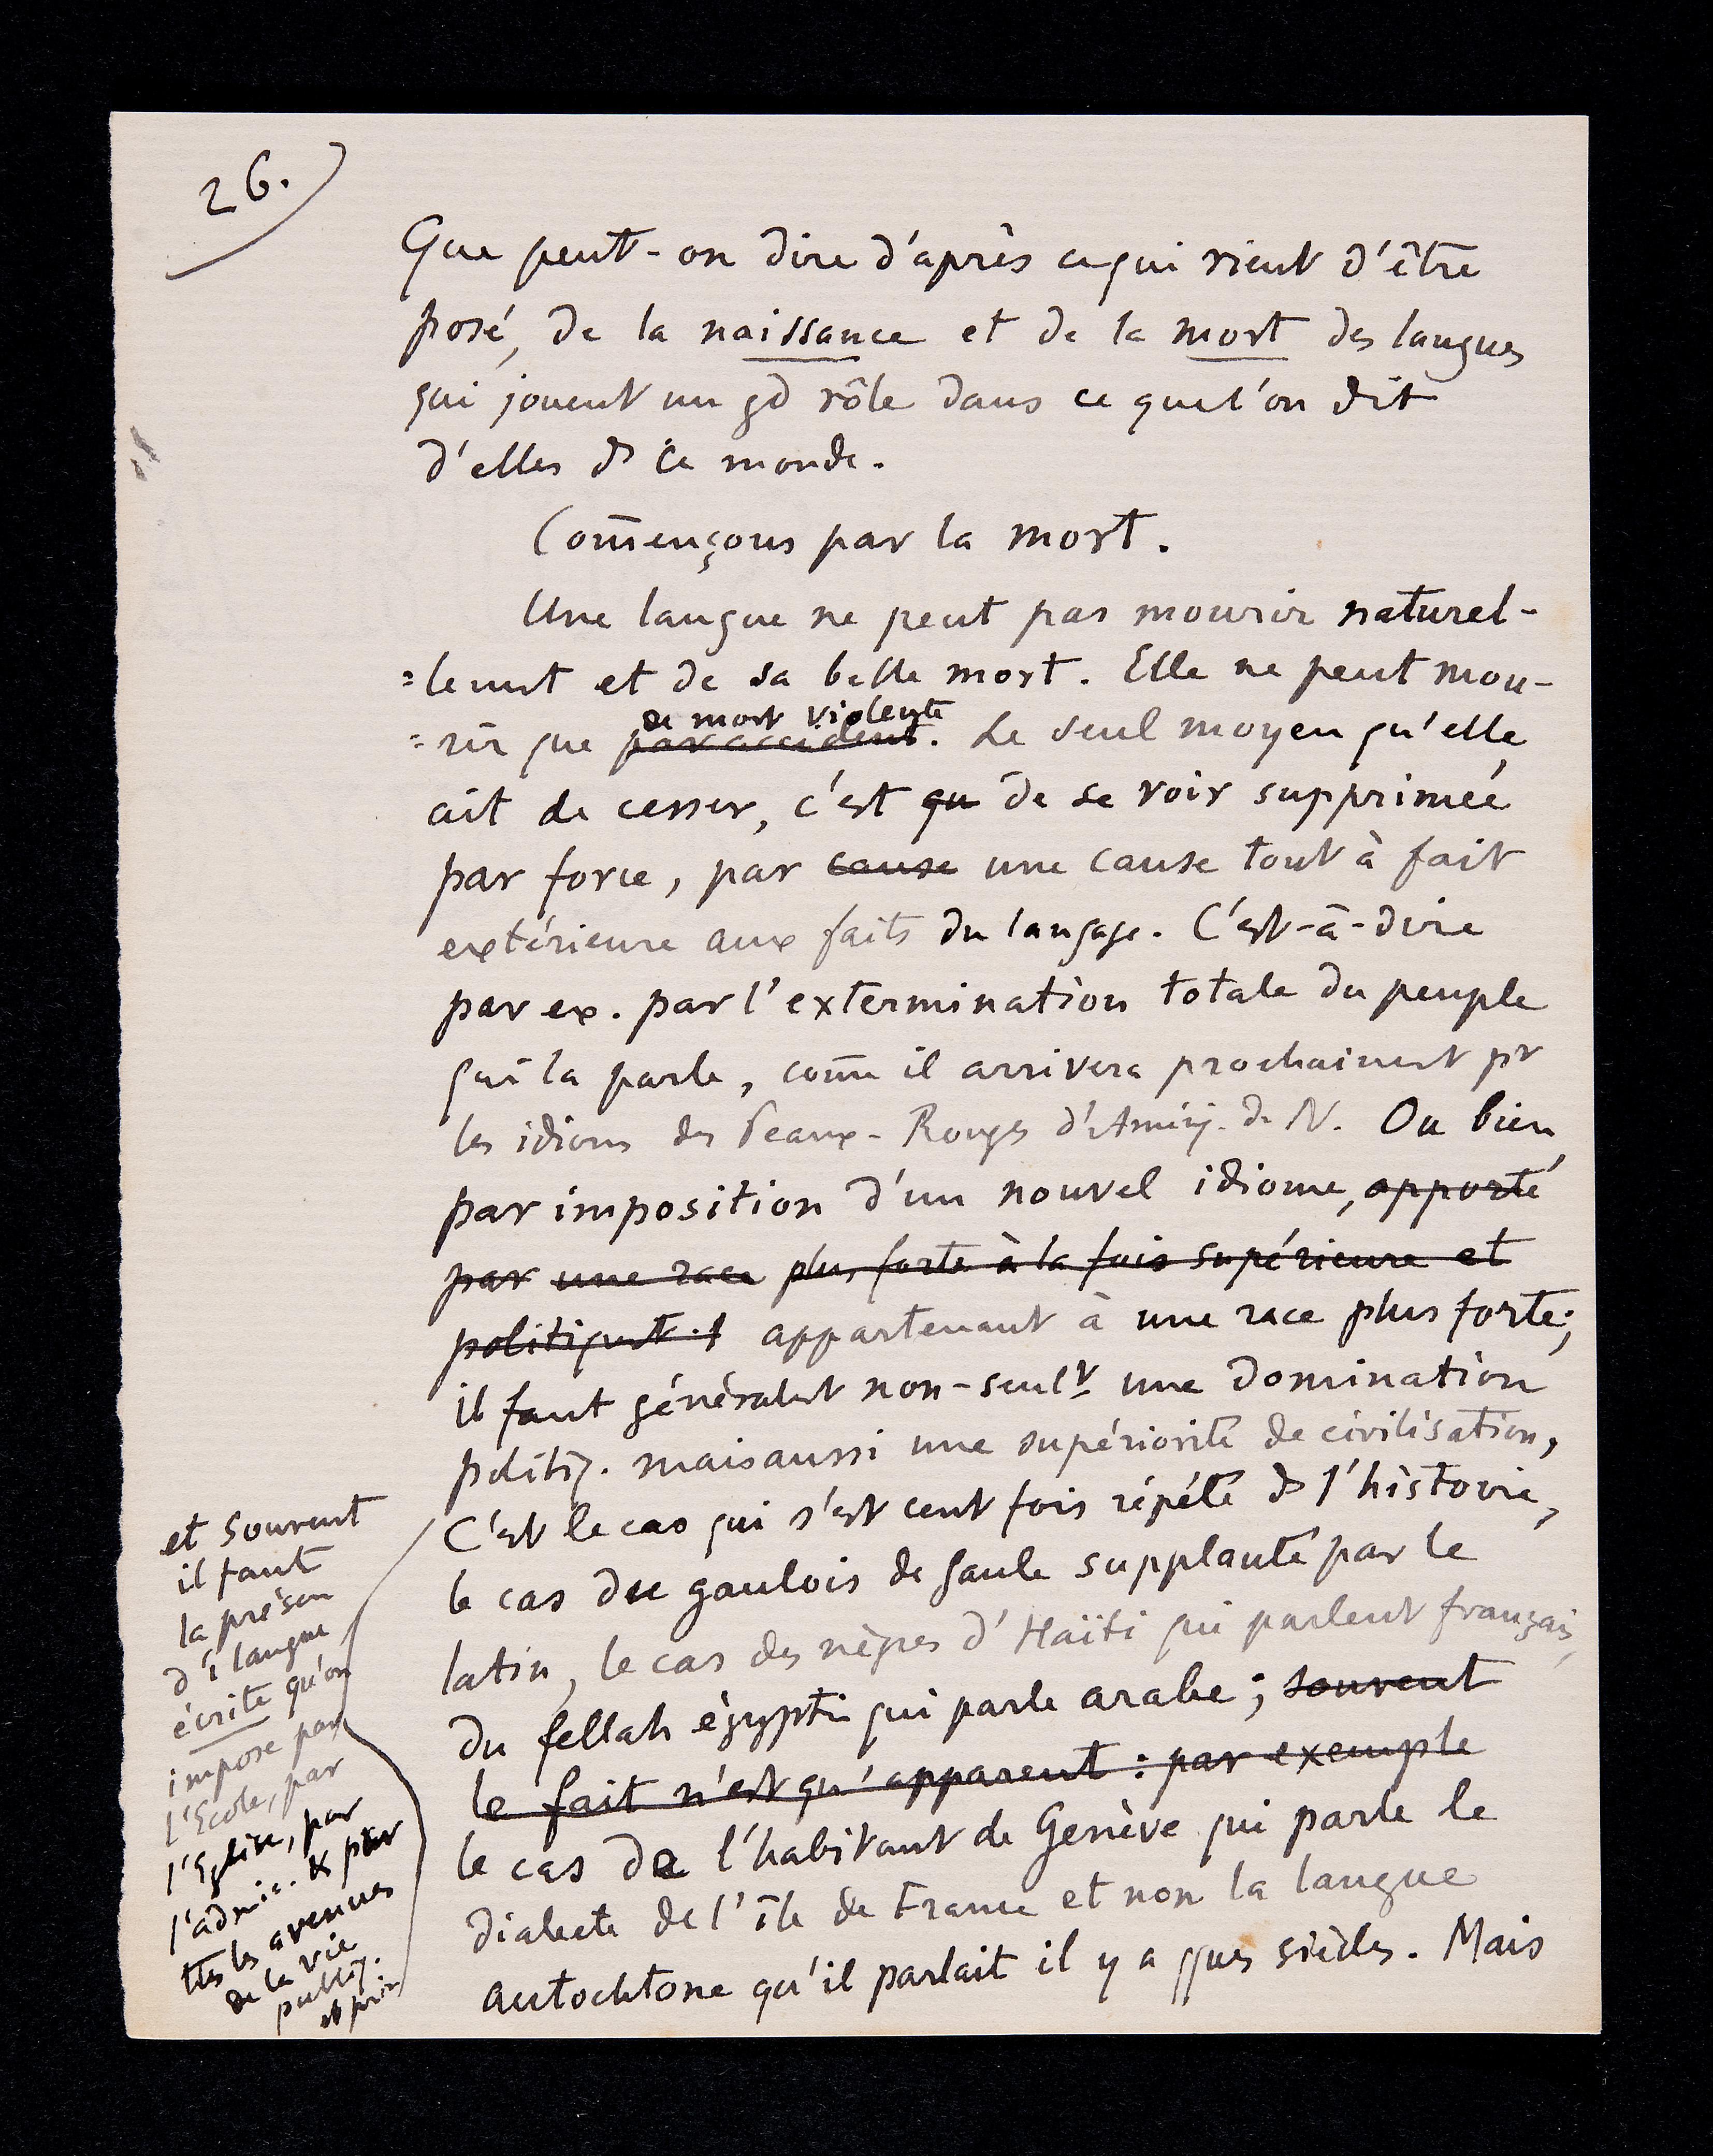 26.
Que peut-on dire d'après ce qui vient d'être
posé, de la naissance et de la mort des langues
qui jouent un gd rôle dans ce que l'on dit
d'elles ds ce monde.
Com̄ençons par la mort.
Une langue ne peut pas mourir naturel-
=lemt et de sa belle mort. Elle ne peut mou-
de mort violente
=rir que par accident. Le seul moyen qu'elle
ait de cesser, c'est qu de se voir supprimée
par force, par cause une cause tout à fait
extérieure aux faits du langage. C'est-à-dire
par ex. par l'extermination totale du peuple
qui la parle, com̄e il arrivera prochainemt pr
les idioms des Peaux-Rouges d'Amériq. du N. Ou bien
par imposition d'un nouvel idiome, apporté
par une race plus forte à la fois supérieure et
politiqmt appartenant à une race plus forte;
il faut généralemt non-seulᵗ une domination
politiq. mais aussi une supériorité de civilisation,
C'est le cas qui s'est cent fois répété ds l'histoire,
le cas du gaulois de Gaule supplanté par le
latin, le cas des nègres d'Haïti qui parlent français,
du fellah égyptin qui parle arabe; souvent
le fait n'est qu'apparent : par exemple
le cas de l'habitant de Genève qui parle le
dialecte de l'île de France et non la langue
autochtone qu'il parlait il y a qques siècles. Mais
et souvent
il faut
la présen
d'1 langue
écrite qu'on
impose par
l'Ecole, par
l'Eglise, par
l'admin. & par
ttes les avenues
de la vie
publiq.
et priv